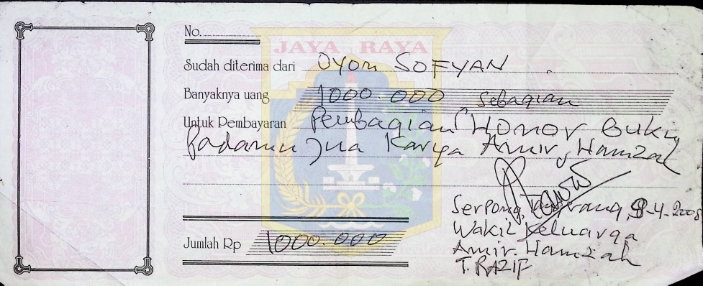 No.
JAYA RAYA
Sudah diterima dari Oyon SOFYAN
Banyaknya uang 1000.000 sebagian
Untuk Pembayaran Pembagian Honor Buku
Padamu Jua Karya Amir Hamzah
Serpong, Tangerang, 8-4-2008
Wakil Keluarga
Amir Hamzah
Jumlah Rp 1000.000
T. RAZIF